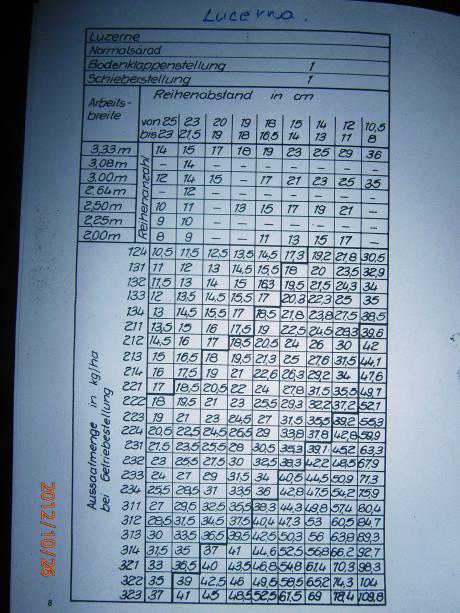 Lucerna.
Luzerne
Normalsärad
Bodenklappenstellung 1
Schieberstellung 1
Arbeits-
breite
Reihenabstand in cm
von 25 23 20 19 18 15 14 12 10,5
bis 23 21,5 19 18 16,5 14 13 11 8
Reihenanzahl
3,33m 14 15 17 18 19 23 25 29 36
3,08m – 14 – – – – – – –
3,00m 12 14 15 – 17 21 23 25 35
2,64m – 12 – – – – – – –
2,50m 10 11 – 13 15 17 19 21 –
2,25m 9 10 – – – – – – –
2,00m 8 9 – – 11 13 15 17 –
Aussaatmenge in kg/ha
bei Getriebestellung
124 10,5 11,5 12,5 13,5 14,5 17,3 19,2 21,8 30,5
131 11 12 13 14,5 15,5 18 20 23,5 32,9
132 11,5 13 14 15 16,3 19,5 21,5 24,3 34
133 12 13,5 14,5 15,5 17 20,3 22,3 25 35
134 13 14,5 15,5 17 18,5 21,8 23,8 27,5 38,5
211 13,5 15 16 17,5 19 22,5 24,5 28,3 39,6
212 14,5 16 17 18,5 20,5 24 26 30 42
213 15 16,5 18 19,5 21,3 25 27,6 31,5 44,1
214 16 17,5 19 21 22,6 26,3 29,2 34 47,6
221 17 18,5 20,5 22 24 27,8 31,5 35,5 49,7
222 18 19,5 21 23 25,5 29,3 32,2 37,2 52,1
223 19 21 23 24,5 27 31,5 35,5 39,2 55,3
224 20,5 22,5 24,5 26,5 29 33,8 37,8 42,8 59,9
231 21,5 23,5 25,5 28 30,5 35,3 39,1 45,2 63,3
232 23 25,5 27,5 30 32,5 38,3 42,2 48,5 67,9
233 24 27 29 31,5 34 40,5 44,5 50,9 71,3
234 25,5 28,5 31 33,5 36 42,8 47,5 54,2 75,9
311 27 29,5 32,5 35,5 38,3 44,3 49,8 57,4 80,4
312 28,5 31,5 34,5 37,5 40,4 47,3 53 60,5 84,7
313 30 33,5 36,5 39,5 42,5 50,3 56 63,8 89,3
314 31,5 35 37 41 44,6 52,5 56,8 66,2 92,7
321 33 36,5 40 43,5 46,8 54,8 61,4 70,3 98,3
322 35 39 42,5 46 49,5 58,5 65,2 74,3 104
323 37 41 45 48,5 52,5 61,5 69 78,4 109,8
8
2012/10/26